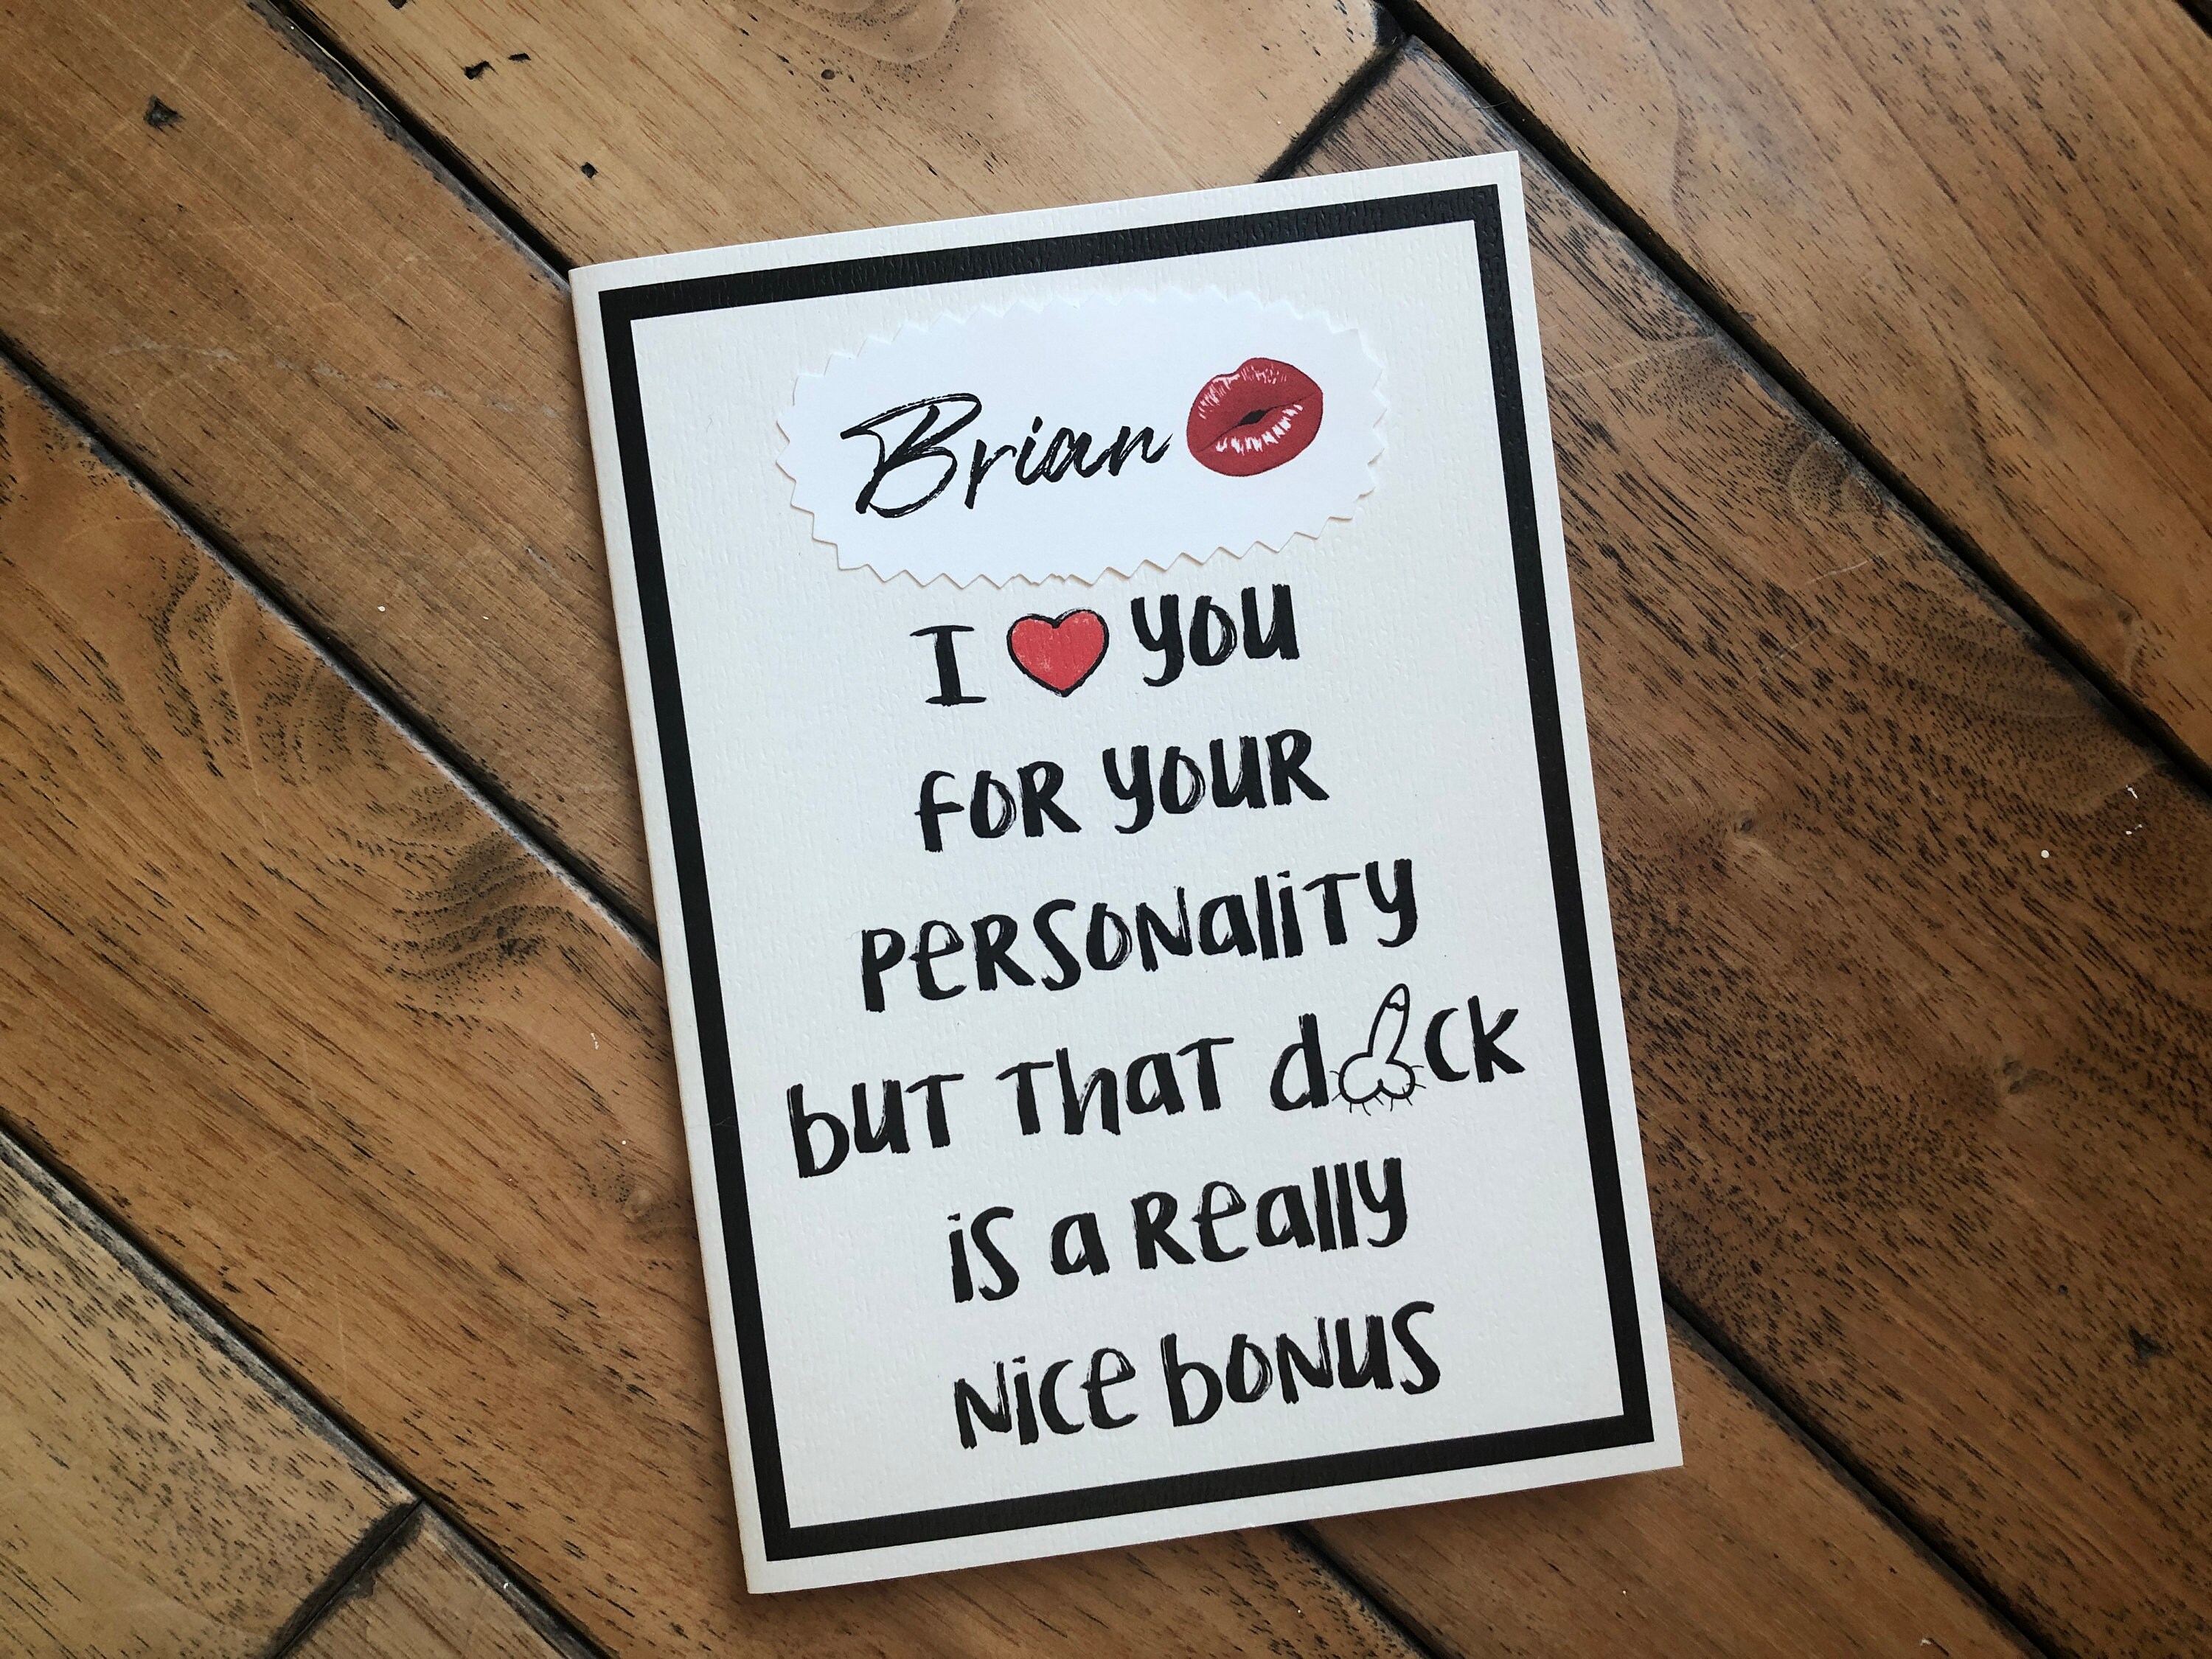 Brian
I ❤ you
for your
personality
but that dick
is a really
nice bonus